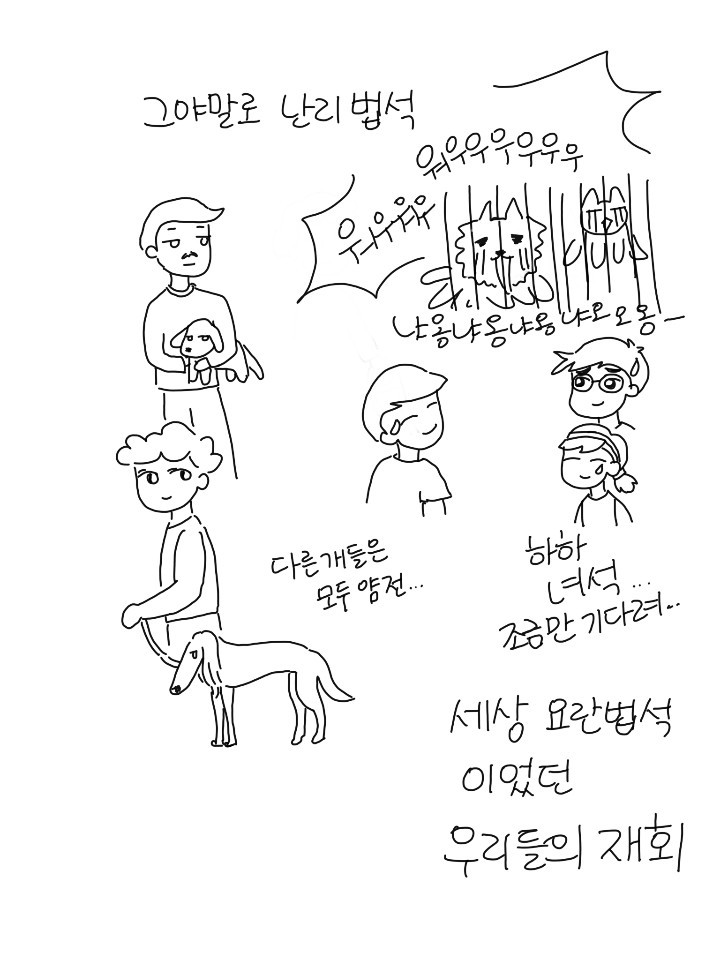 그야말로 난리법석
워우우우우우우
우와유유
냐옹냐옹냐옹냐오오옹-
다른개들은
모두 얌전...
하하
녀석...
조금만 기다려..
세상 요란법석
이었던
우리들의 재회